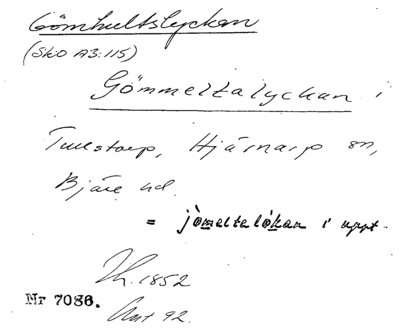 Gömhultslyckan
(SkO A3:115)
Gömmeltalyckan i
Tullstorp, Hjärnarp sn,
Bjäre hd.
= jòmeltalókan i uppt.
1852
Nr 7086. Ant 92.